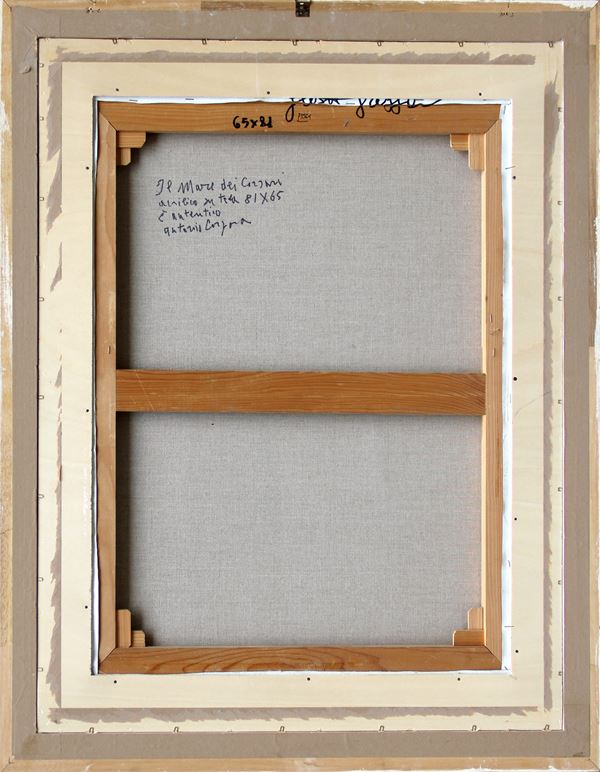 65x81
Il Mare dei Corsari
acrilico su tela 81X65
è autentico
Antonio Corpora